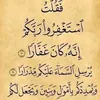 فَقُلْتُ
ٱسْتَغْفِرُوا۟ رَبَّكُمْ
إِنَّهُۥ كَانَ غَفَّارًا ۝١٠
يُرْسِلِ ٱلسَّمَآءَ عَلَيْكُم مِّدْرَارًا ۝١١
وَيُمْدِدْكُم بِأَمْوَٰلٍ وَبَنِينَ وَيَجْعَل لَّكُمْ